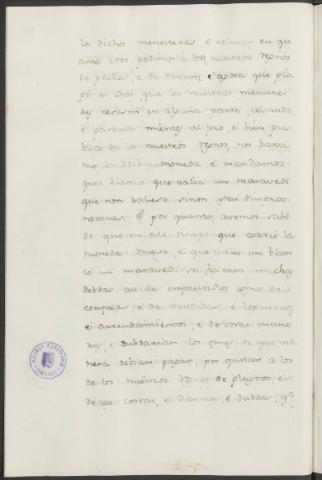 los dichos menesteres, é relevar en qu
anto nos podimos á los nuestros Regnos
de pechos, é de dannos; é agora que pla
gó á Dios, que los nuestros menesteres
cesaron en alguna parte, veyendo,
é parando mientes al pro, é bien pu
blico de los nuestros Regnos, nos baxa
mos la dicha moneda, é mandamos
quel blanco que valia un maravedi
que non valiese sinon seis dineros
novenes. É por quanto avemos sabi
do que en este tiempo que corrió la
moneda nueva, é que valió un blan
co un maravedi se ficieron muchas
debdas asi de emprestidos como de
comprar, é de vender, é
é arrendamientos, é de otras mane
ras, é dubdarian los que de que ma
nera debian pagar, por quitar á los
de los nuestros Regnos de pleytos, é
de las costas, é dannos, é dubdas, q.e